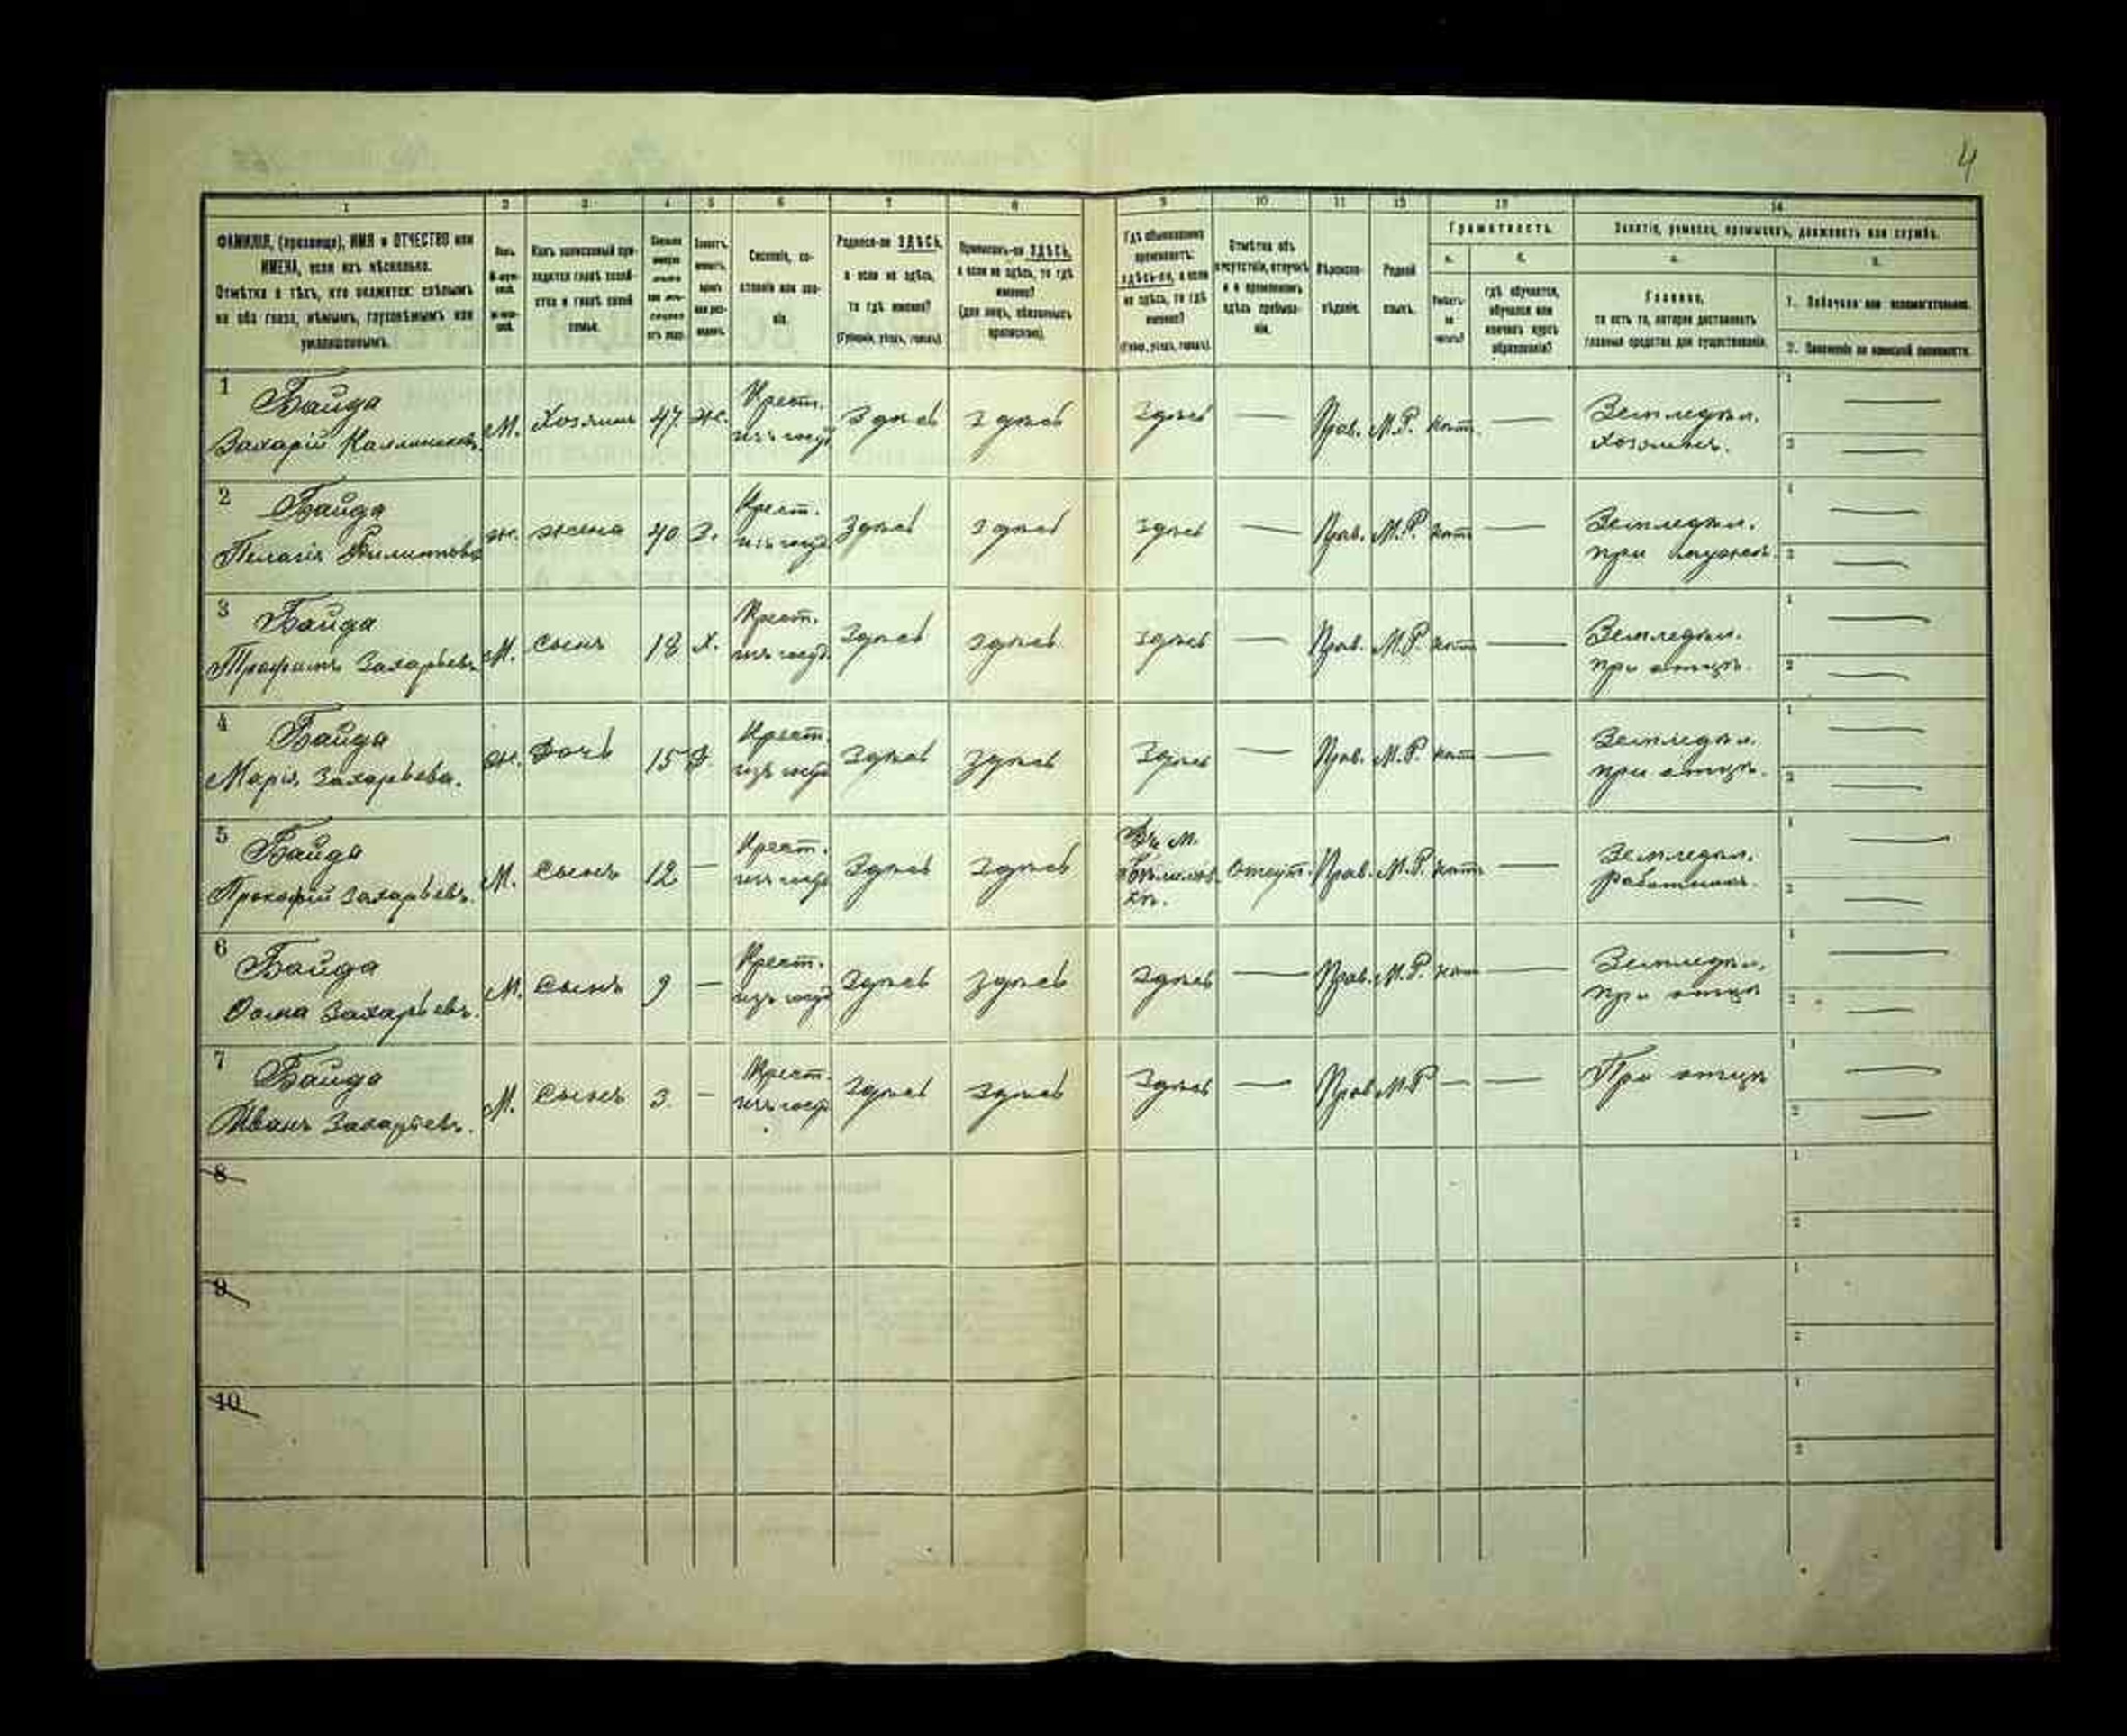 4
1 2 3 4 5 6 7 8 9 10 11 12 13 14
ФАМИЛІЯ, (прозвище), ИМЯ и ОТЧЕСТВО или
ИМЕНА, если ихъ нѣсколько.
Отмѣтка о тѣхъ, кто окажется: слѣпымъ
на оба глаза, нѣмымъ, глухонѣмымъ или
умалишеннымъ.
Полъ.
Какъ записанный при-
ходится главѣ хозяй-
ства и главѣ своей
семьи.
Сословіе, со-
стояніе или зва-
ніе.
Родился-ли ЗДѢСЬ,
а если не здѣсь,
то гдѣ именно?
(Губернія, уѣздъ, городъ).
Приписанъ-ли ЗДѢСЬ,
а если не здѣсь, то гдѣ
именно?
(для лицъ, обязанныхъ
припискою).
Гдѣ обыкновенно
проживаетъ:
здѣсь-ли, а если
не здѣсь, то гдѣ
именно?
(Губер., уѣздъ, городъ).
Отмѣтка объ
отсутствіи, отлучкѣ
и о временномъ
здѣсь пребыва-
ніи.
Вѣроиспо-
вѣданіе.
Родной
языкъ.
Грамотность.
а.
Умѣетъ-
ли
читать?
б.
гдѣ обучается,
обучался или
кончилъ курсъ
образованія?
Занятіе, ремесло, промыселъ, должность или служба.
а.
Главное,
то есть то, которое доставляетъ
главныя средства для существованія.
б.
1. Побочное или вспомогательное.
2. Положеніе по воинской повинности.
1 Байда
Захарій М. Хозяинъ 47 ж. Крест. изъ госуд. Здѣсь Здѣсь Здѣсь — Прав. М.Р. нѣтъ — Земледѣл. хозяинъ. 1 — 2 —
2 Байда
Пелагія ж. жена 40 З. Крест. изъ госуд. Здѣсь Здѣсь Здѣсь — Прав. М.Р. нѣтъ — Земледѣл. при мужѣ. 1 — 2 —
3 Байда
Трофимъ Захарьевъ М. Сынъ 18 Х. Крест. изъ госуд. Здѣсь Здѣсь Здѣсь — Прав. М.Р. нѣтъ — Земледѣл. при отцѣ. 1 — 2 —
4 Байда
Марія Захарьева. ж. Дочь 15 Д. Крест. изъ госуд. Здѣсь Здѣсь Здѣсь — Прав. М.Р. нѣтъ — Земледѣл. при отцѣ. 1 — 2 —
5 Байда
Прокофій Захарьевъ. М. Сынъ 12 — Крест. изъ госуд. Здѣсь Здѣсь Въ М. Отсут. Прав. М.Р. нѣтъ — Земледѣл. работникъ. 1 — 2 —
6 Байда
Ѳома Захарьевъ. М. Сынъ 9 — Крест. изъ госуд. Здѣсь Здѣсь Здѣсь — Прав. М.Р. нѣтъ — Земледѣл. при отцѣ 1 — 2 —
7 Байда
Иванъ Захарьевъ. М. Сынъ 3. — Крест. изъ госуд. Здѣсь Здѣсь Здѣсь — Прав. М.Р. — — При отцѣ 1 — 2 —
8 1 2
9 1 2
10 1 2